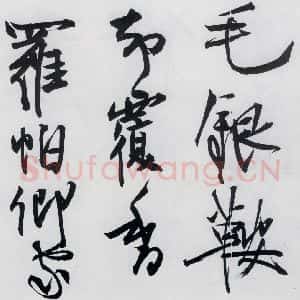 毛銀鞍
却覆香
羅帕卿家
Shufawang.CN